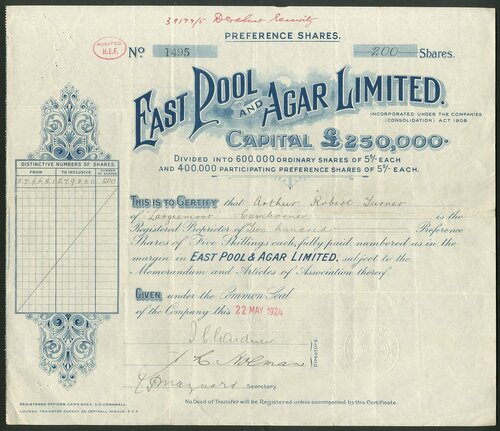 39179/5 Deceased Security
PREFERENCE SHARES.
AUDITED
H.E.F.
No 1495
200 Shares.
EAST POOL AND AGAR LIMITED.
INCORPORATED UNDER THE COMPANIES
(CONSOLIDATION) ACT 1908.
CAPITAL £250,000.
DIVIDED INTO 600,000 ORDINARY SHARES OF 5/- EACH
AND 400,000 PARTICIPATING PREFERENCE SHARES OF 5/- EACH.
DISTINCTIVE NUMBERS OF SHARES
FROM TO INCLUSIVE NUMBER OF SHARES
200
THIS IS TO CERTIFY that Arthur Robert Turner
of Camborne is the
Registered Proprietor of Two hundred Preference
Shares of Five Shillings each, fully paid, numbered as in the
margin in EAST POOL & AGAR LIMITED, subject to the
Memorandum and Articles of Association thereof.
GIVEN under the Common Seal
of the Company this 22 MAY 1924
Directors
Secretary
REGISTERED OFFICES: CARN BREA, S.O. CORNWALL
LONDON TRANSFER AGENCY, 22, COPTHALL AVENUE, E.C.2
No Deed of Transfer will be Registered unless accompanied by this Certificate.